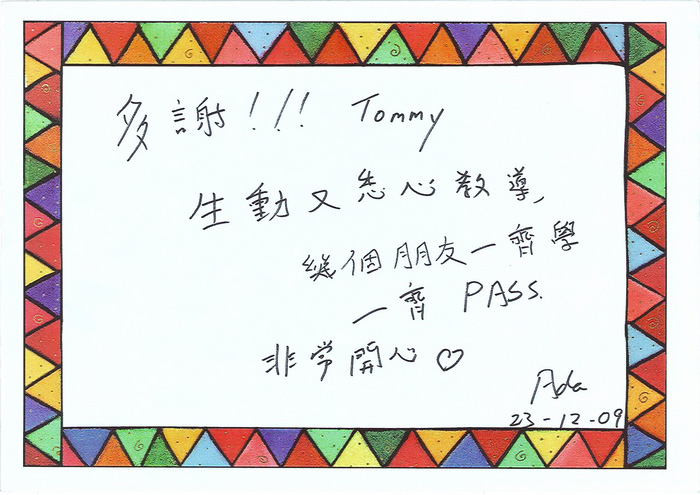 多謝!!! Tommy
生動又悉心教導,
幾個朋友一齊學
一齊 PASS.
非常開心♡
Ada
23-12-09